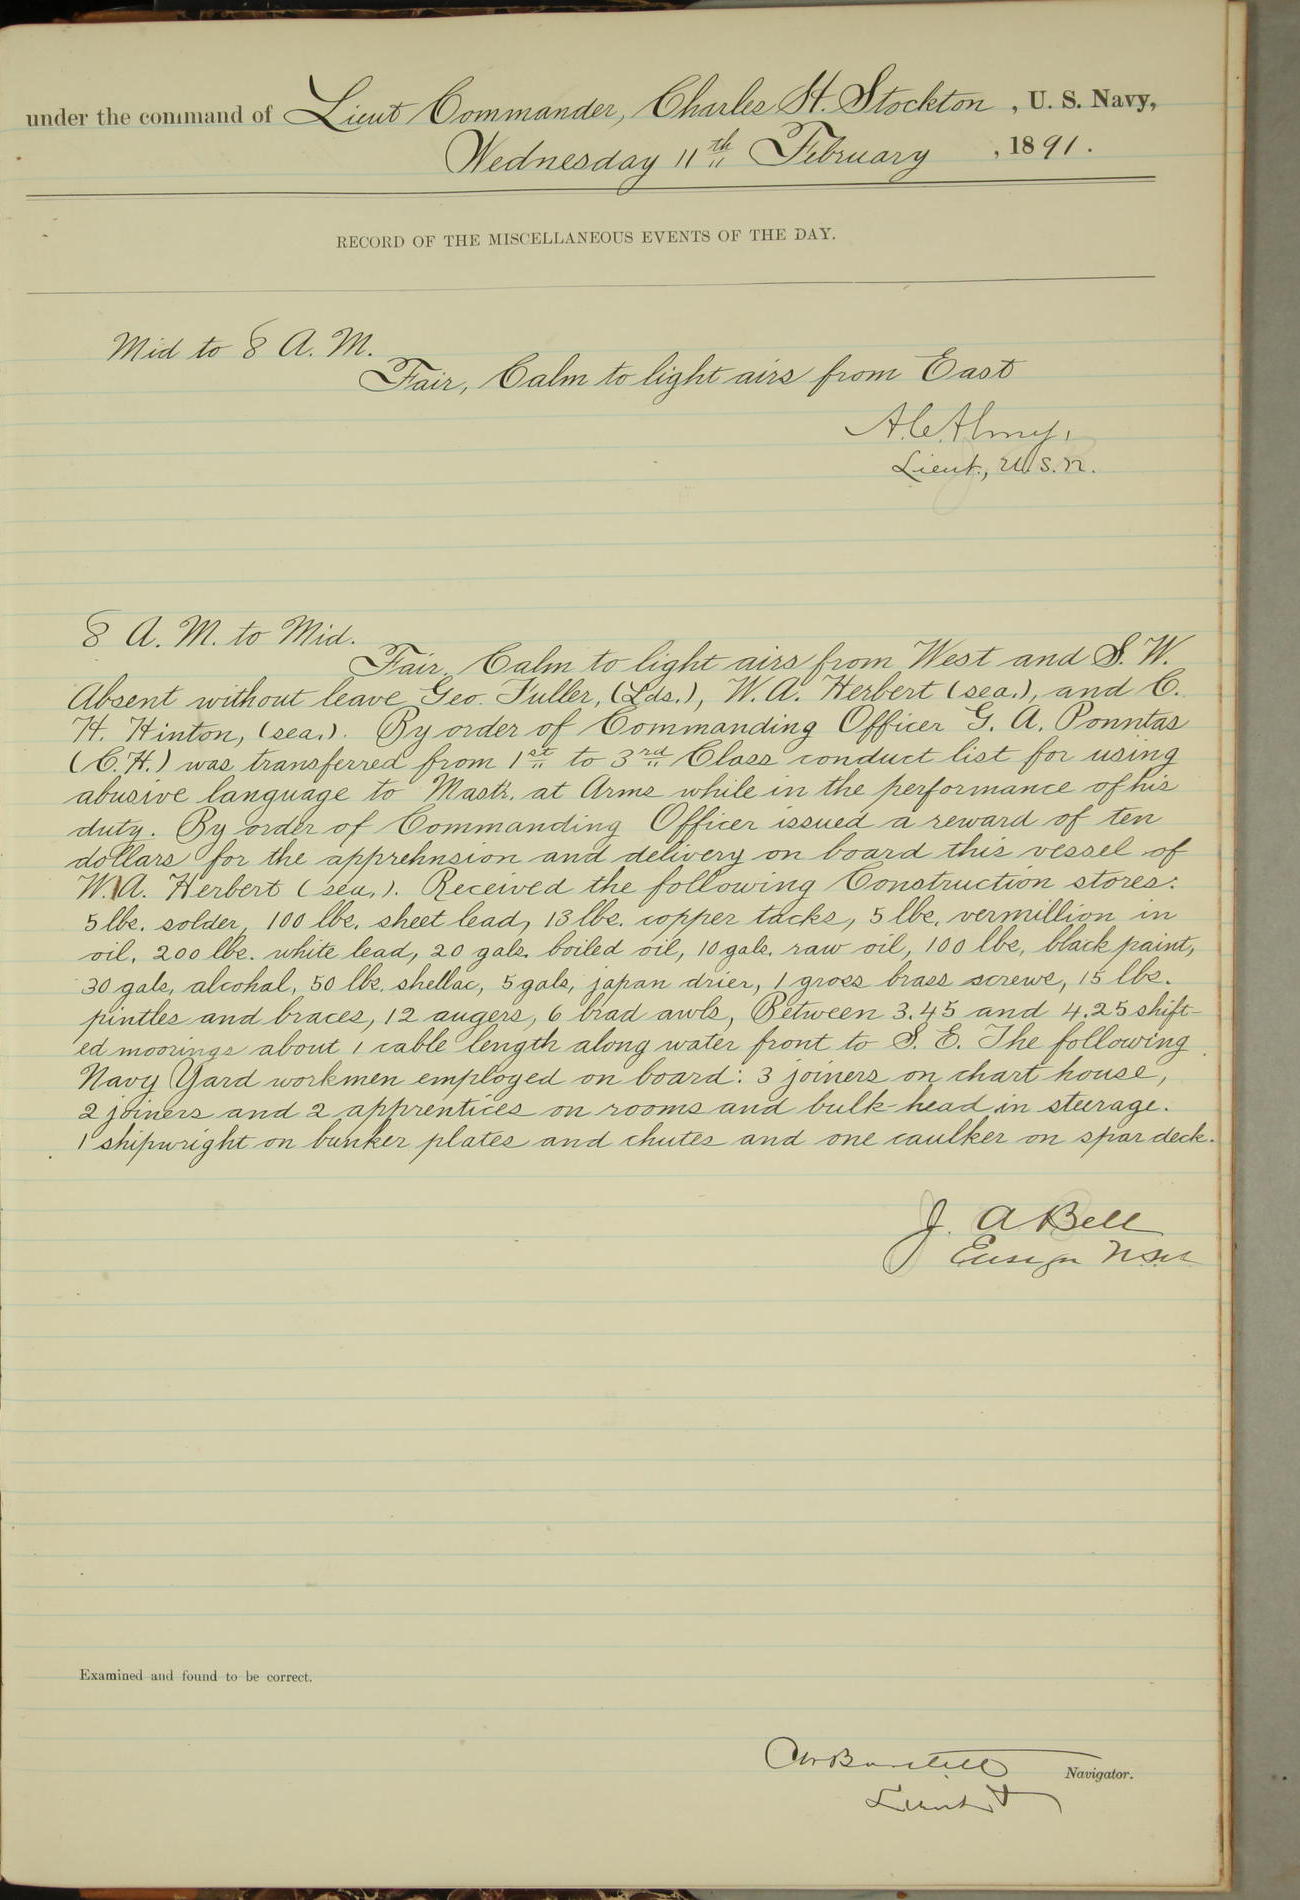 under the command of Lieut Commander, Charles H. Stockton , U. S. Navy,
Wednesday 11th February , 1891.
RECORD OF THE MISCELLANEOUS EVENTS OF THE DAY.
Mid to 8 A. M.
Fair, Calm to light airs from East
A. C. Almy,
Lieut., U.S.N.
8 A. M. to Mid.
Fair. Calm to light airs from West and S. W.
Absent without leave Geo. Fuller, (Lds.), W. A. Herbert (sea.), and C.
H. Hinton, (sea.). By order of Commanding Officer G. A. Ponntas
(C. H.) was transferred from 1st to 3rd Class conduct list for using
abusive language to Mastr. at Arms while in the performance of his
duty. By order of Commanding Officer issued a reward of ten
dollars for the apprehnsion and delivery on board this vessel of
W. A. Herbert (sea.). Received the following Construction stores:
5 lbs. solder, 100 lbs. sheet lead, 13 lbs. copper tacks, 5 lbs. vermillion in
oil, 200 lbs. white lead, 20 gals. boiled oil, 10 gals. raw oil, 100 lbs, black paint,
30 gals, alcohal, 50 lbs. shellac, 5 gals, japan drier, 1 gross brass screws, 15 lbs.
pintles and braces, 12 augers, 6 brad awls, Between 3.45 and 4.25 shift-
ed moorings about 1 cable length along water front to S. E. The following
Navy Yard workmen employed on board: 3 joiners on chart house,
2 joiners and 2 apprentices on rooms and bulk-head in steerage.
1 shipwright on bunker plates and chutes and one caulker on spar deck.
J. A Bell
Ensign USN
Examined and found to be correct.
Navigator.
Lieut